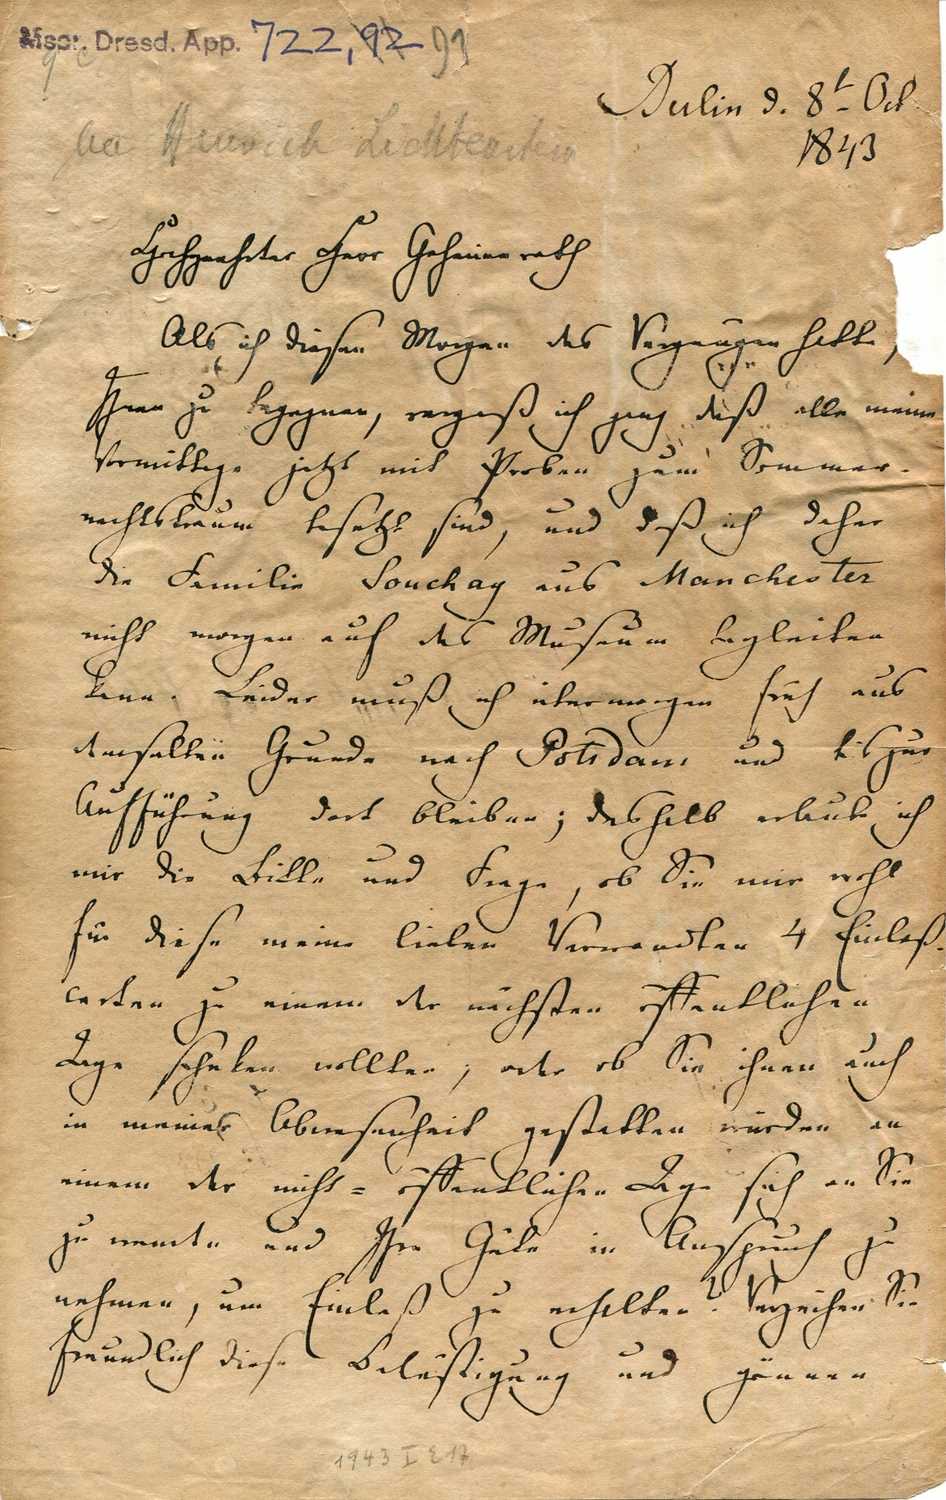 Mscr. Dresd. App. 722, 92 91
an Heinrich Lichtenstein
Berlin d. 8t Oct
1843
Hochgeehrter Herr Geheimerath
Als ich diesen Morgen das Vergnügen hatte,
Ihnen zu begegnen, vergaß ich ganz daß alle meine
Vormittage jetzt mit Proben zum Sommer-
nachtstraum besetzt sind, und daß ich daher
die Familie Souchay aus Manchester
nicht morgen auf das Museum begleiten
kann. Leider muß ich übermorgen früh aus
demselben Grunde nach Potsdam und bis zur
Aufführung dort bleiben; deshalb erlaube ich
mir die Bitte und Frage, ob Sie mir wohl
für diese meine lieben Verwandten 4 Einlaß-
carten zu einem der nächsten öffentlichen
Tage schenken wollten; oder ob Sie ihnen auch
in meiner Abwesenheit gestatten würden an
einem der nicht=öffentlichen Tage sich an Sie
zu wenden und Ihre Güte in Anspruch zu
nehmen, um Einlaß zu erhalten? Verzeihen Sie
freundlich diese Belästigung und gönnen
1943 I E 17